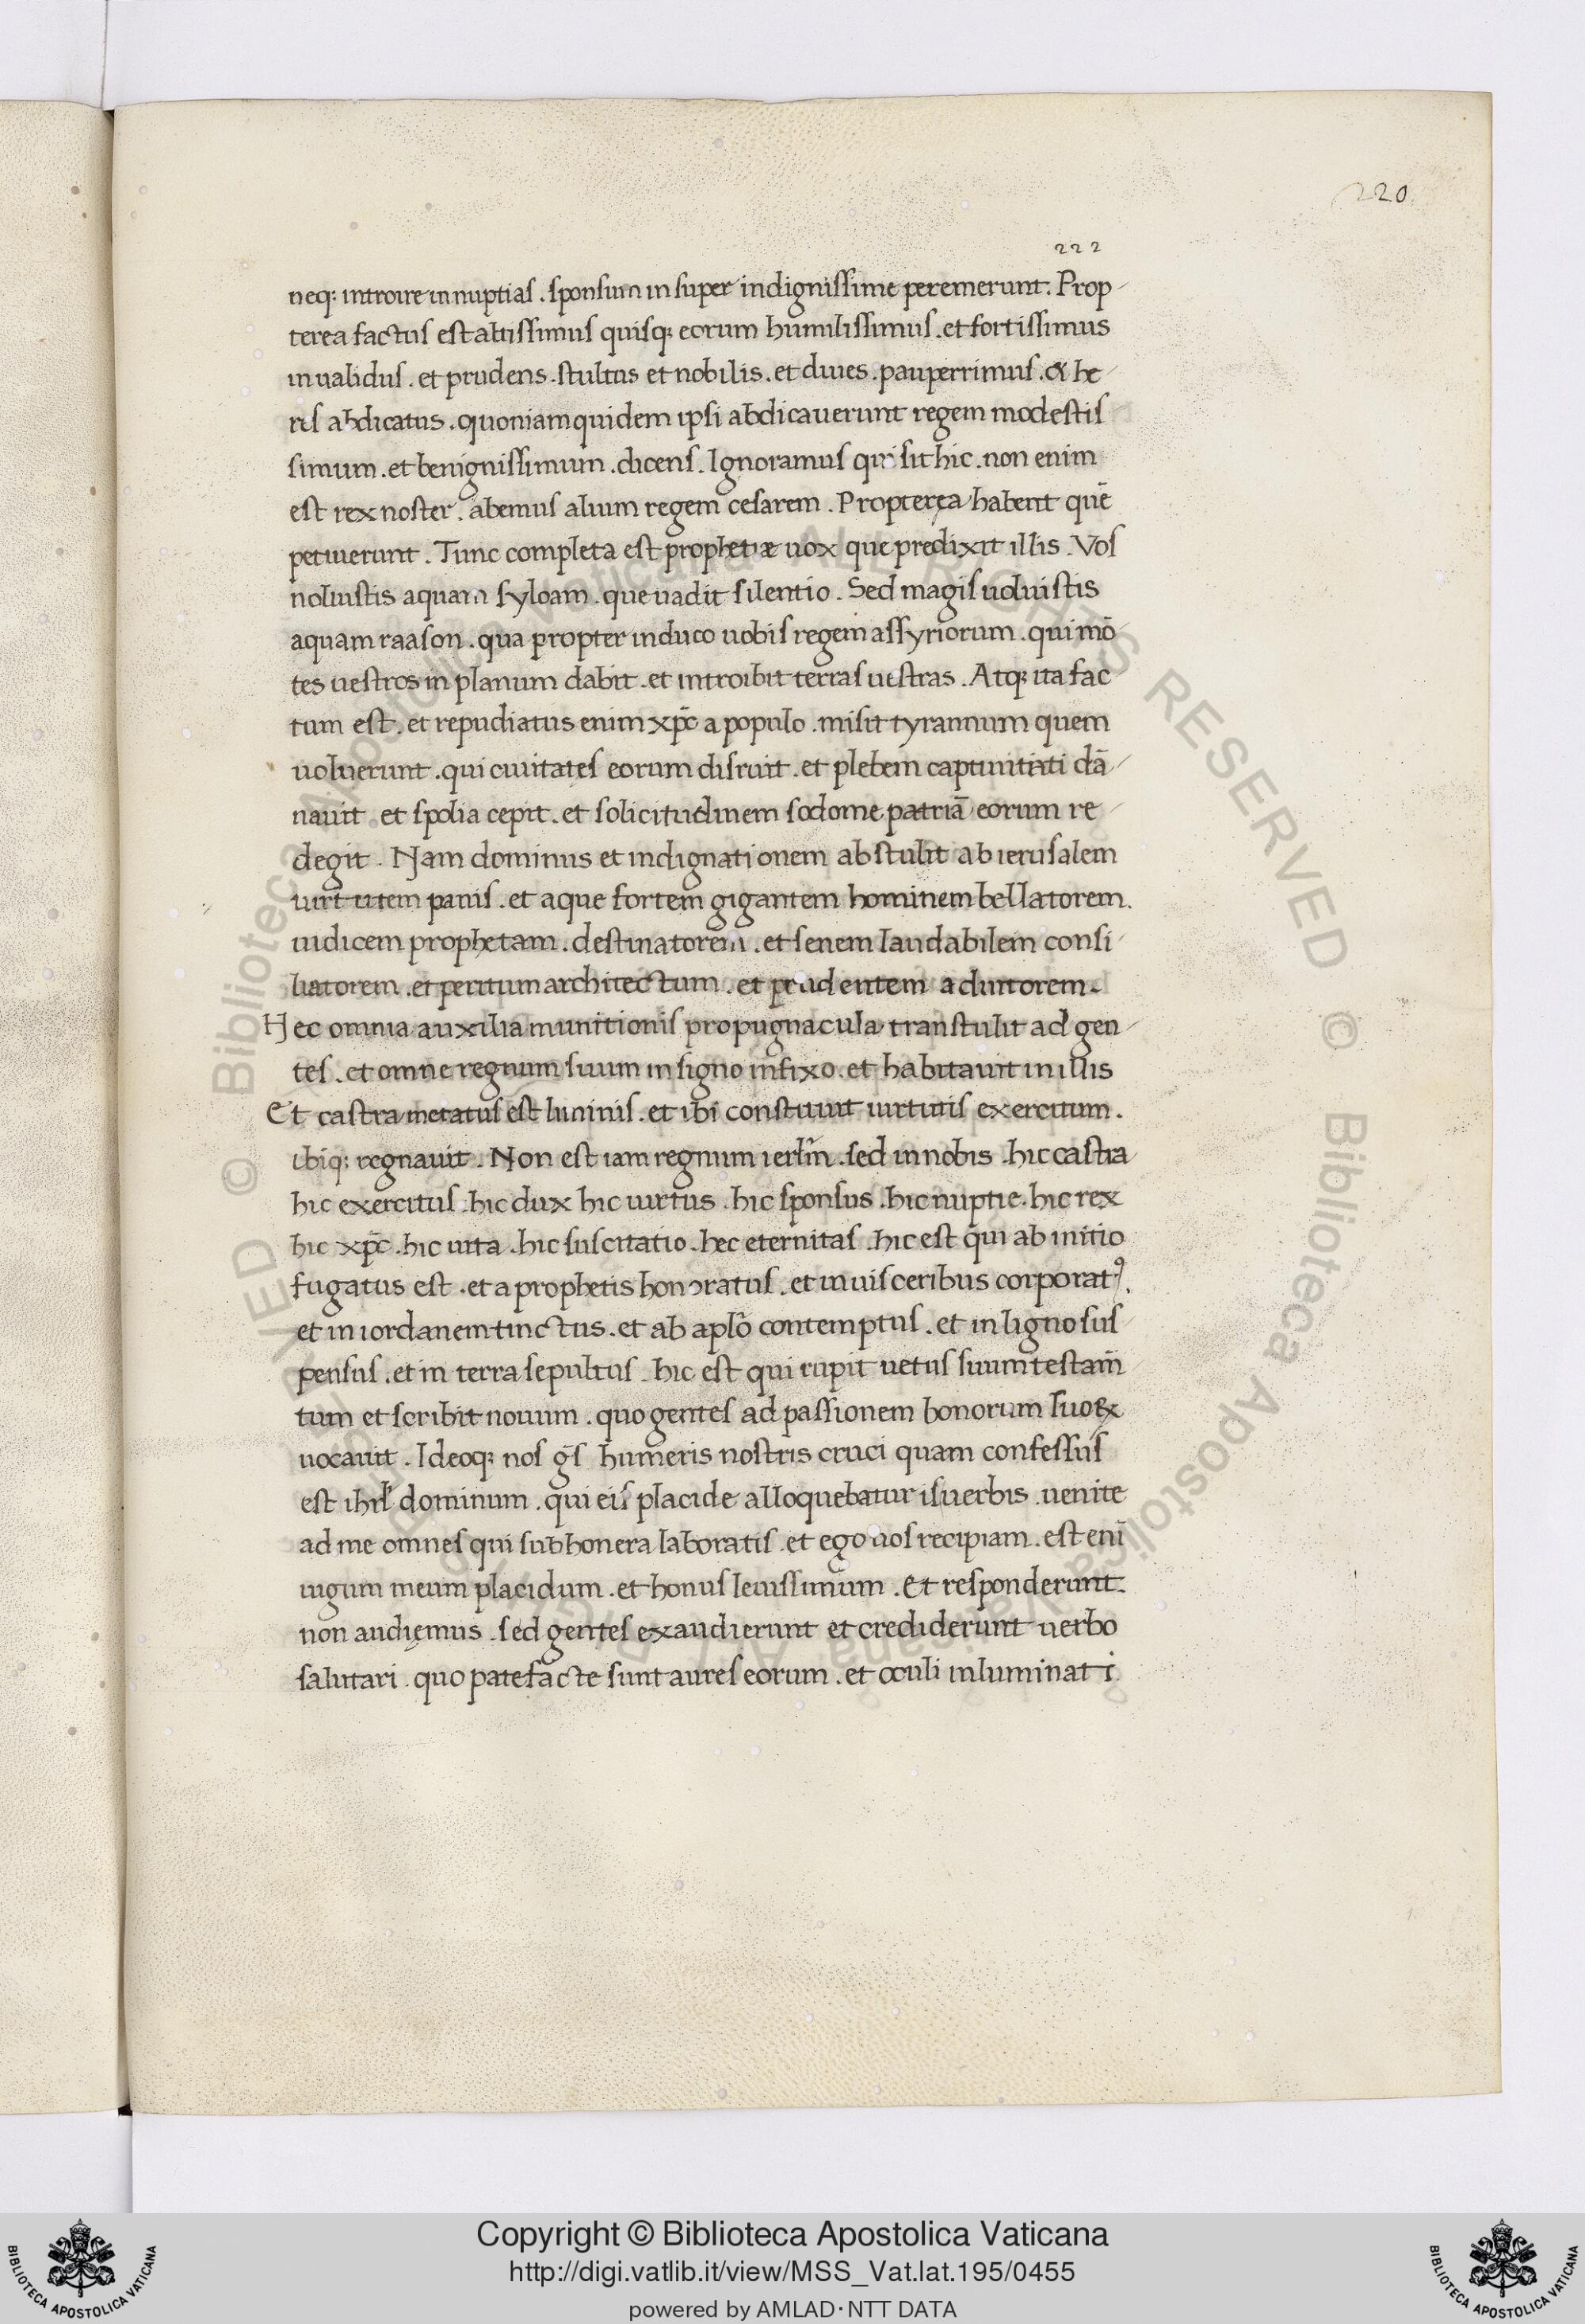 220
222
neq; introire in nuptias . sponsum in super indignissime peremerunt. Prop-
terea factus est altissimus quisq; eorum humilissimus . et fortissimus
inualidus . et prudens . stultus et nobilis . et diues . pauperrimus . & he-
res abdicatus . quoniamquidem ipsi abdicauerunt regem modestis
simum . et benignissimum . dicens . Ignoramus qui sit hic . non enim
est rex noster . abemus alium regem cesarem . Propterea habent quē
petiuerunt . Tunc completa est prophetiæ uox que predixit illis . Vos
noluistis aquam syloam . que uadit silentio . Sed magis uoluistis
aquam raason . qua propter induco uobis regem assyriorum . qui mō
tes uestros in planum dabit . et introibit terras uestras . Atq; ita fac
tum est . et repudiatus enim xp̄c a populo . misit tyrannum quem
uoluerunt . qui ciuitates eorum disruit . et plebem captiuitati dā-
nauit . et spolia cepit . et solicitudinem sodome patriā eorum re-
degit . Nam dominus et indignationem abstulit ab ierusalem
uirtutem panis . et aque fortem gigantem hominem bellatorem .
iudicem prophetam . destinatorem . et senem laudabilem consi-
liatorem . et peritum architectum . et prudentem adiutorem .
Hec omnia auxilia munitionis propugnacula transtulit ad gen-
tes . et omne regnum suum in signo infixo . et habitauit in illis
Et castra metatus est luminis . et ibi constituit uirtutis exercitum .
ibiq; regnauit . Non est iam regnum ierl̄m . sed in nobis . hic castra
hic exercitus . hic dux hic uirtus . hic sponsus . hic nuptie . hic rex
hic xp̄c . hic uita . hic suscitatio . hec eternitas . hic est qui ab initio
fugatus est . et a prophetis honoratus . et in uisceribus corporatꝰ .
et in iordanem tinctus . et ab apl̄o contemptus . et in ligno sus-
pensus . et in terra sepultus . hic est qui rupit uetus suum testam̄-
tum et scribit nouum . quo gentes ad passionem bonorum suoꝝ
uocauit . Ideoq; nos ḡs humeris nostris cruci quam confessus
est ihrl̄ dominum . qui eis placide alloquebatur is uerbis . uenite
ad me omnes qui sub honera laboratis . et ego uos recipiam . est enī
iugum meum placidum . et honus leuissimum . Et responderunt .
non audiemus . sed gentes exaudierunt et crediderunt uerbo
salutari . quo patefacte sunt aures eorum . et oculi inluminati
© Biblioteca Apostolica Vaticana ALL RIGHTS RESERVED
Copyright © Biblioteca Apostolica Vaticana
http://digi.vatlib.it/view/MSS_Vat.lat.195/0455
powered by AMLAD·NTT DATA
BIBLIOTECA APOSTOLICA VATICANA
BIBLIOTECA APOSTOLICA VATICANA